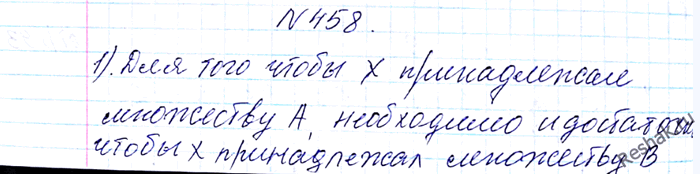 N 458.
1). Для того чтобы x принадлежал
множеству A, необходимо и достаточн
чтобы x принадлежал множеству B
Reshak.ru